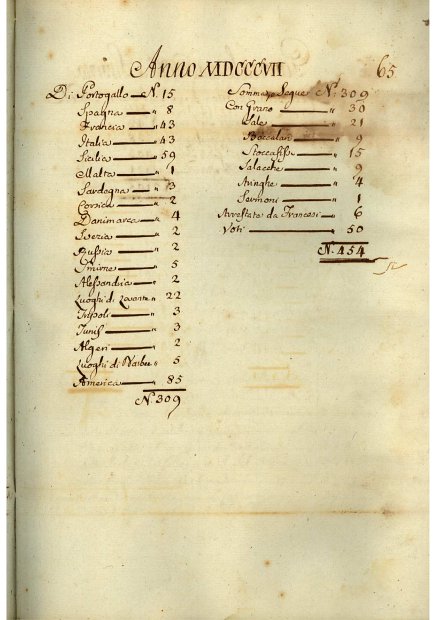 Anno MDCCCVII 65
Di Portogallo N. 15
Spagna " 8
Francia " 43
Italia " 43
Sicilia " 59
Malta " 1
Sardegna " 3
Corsica " 2
Danimarca " 4
Svezia " 2
Russia " 2
Smirne " 5
Alessandria " 2
Luoghi di Levante " 22
Tripoli " 3
Tunis " 3
Algeri " 2
Luoghi di " 5
America " 85
N. 309
Somma e Segue N. 309
Con Grano " 30
Sale " 21
Baccalari " 9
Stoccafiss " 15
Salacche " 9
Aringhe " 4
Sermoni " 1
Arrestate da Francesi " 6
Voti " 50
N. 454